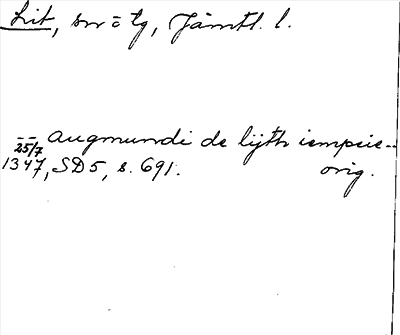 Lit, sn o tg, Jämtl. l.
-- augmundi de lijth iempcie--
25/7
1347, SD5, s. 691. orig.